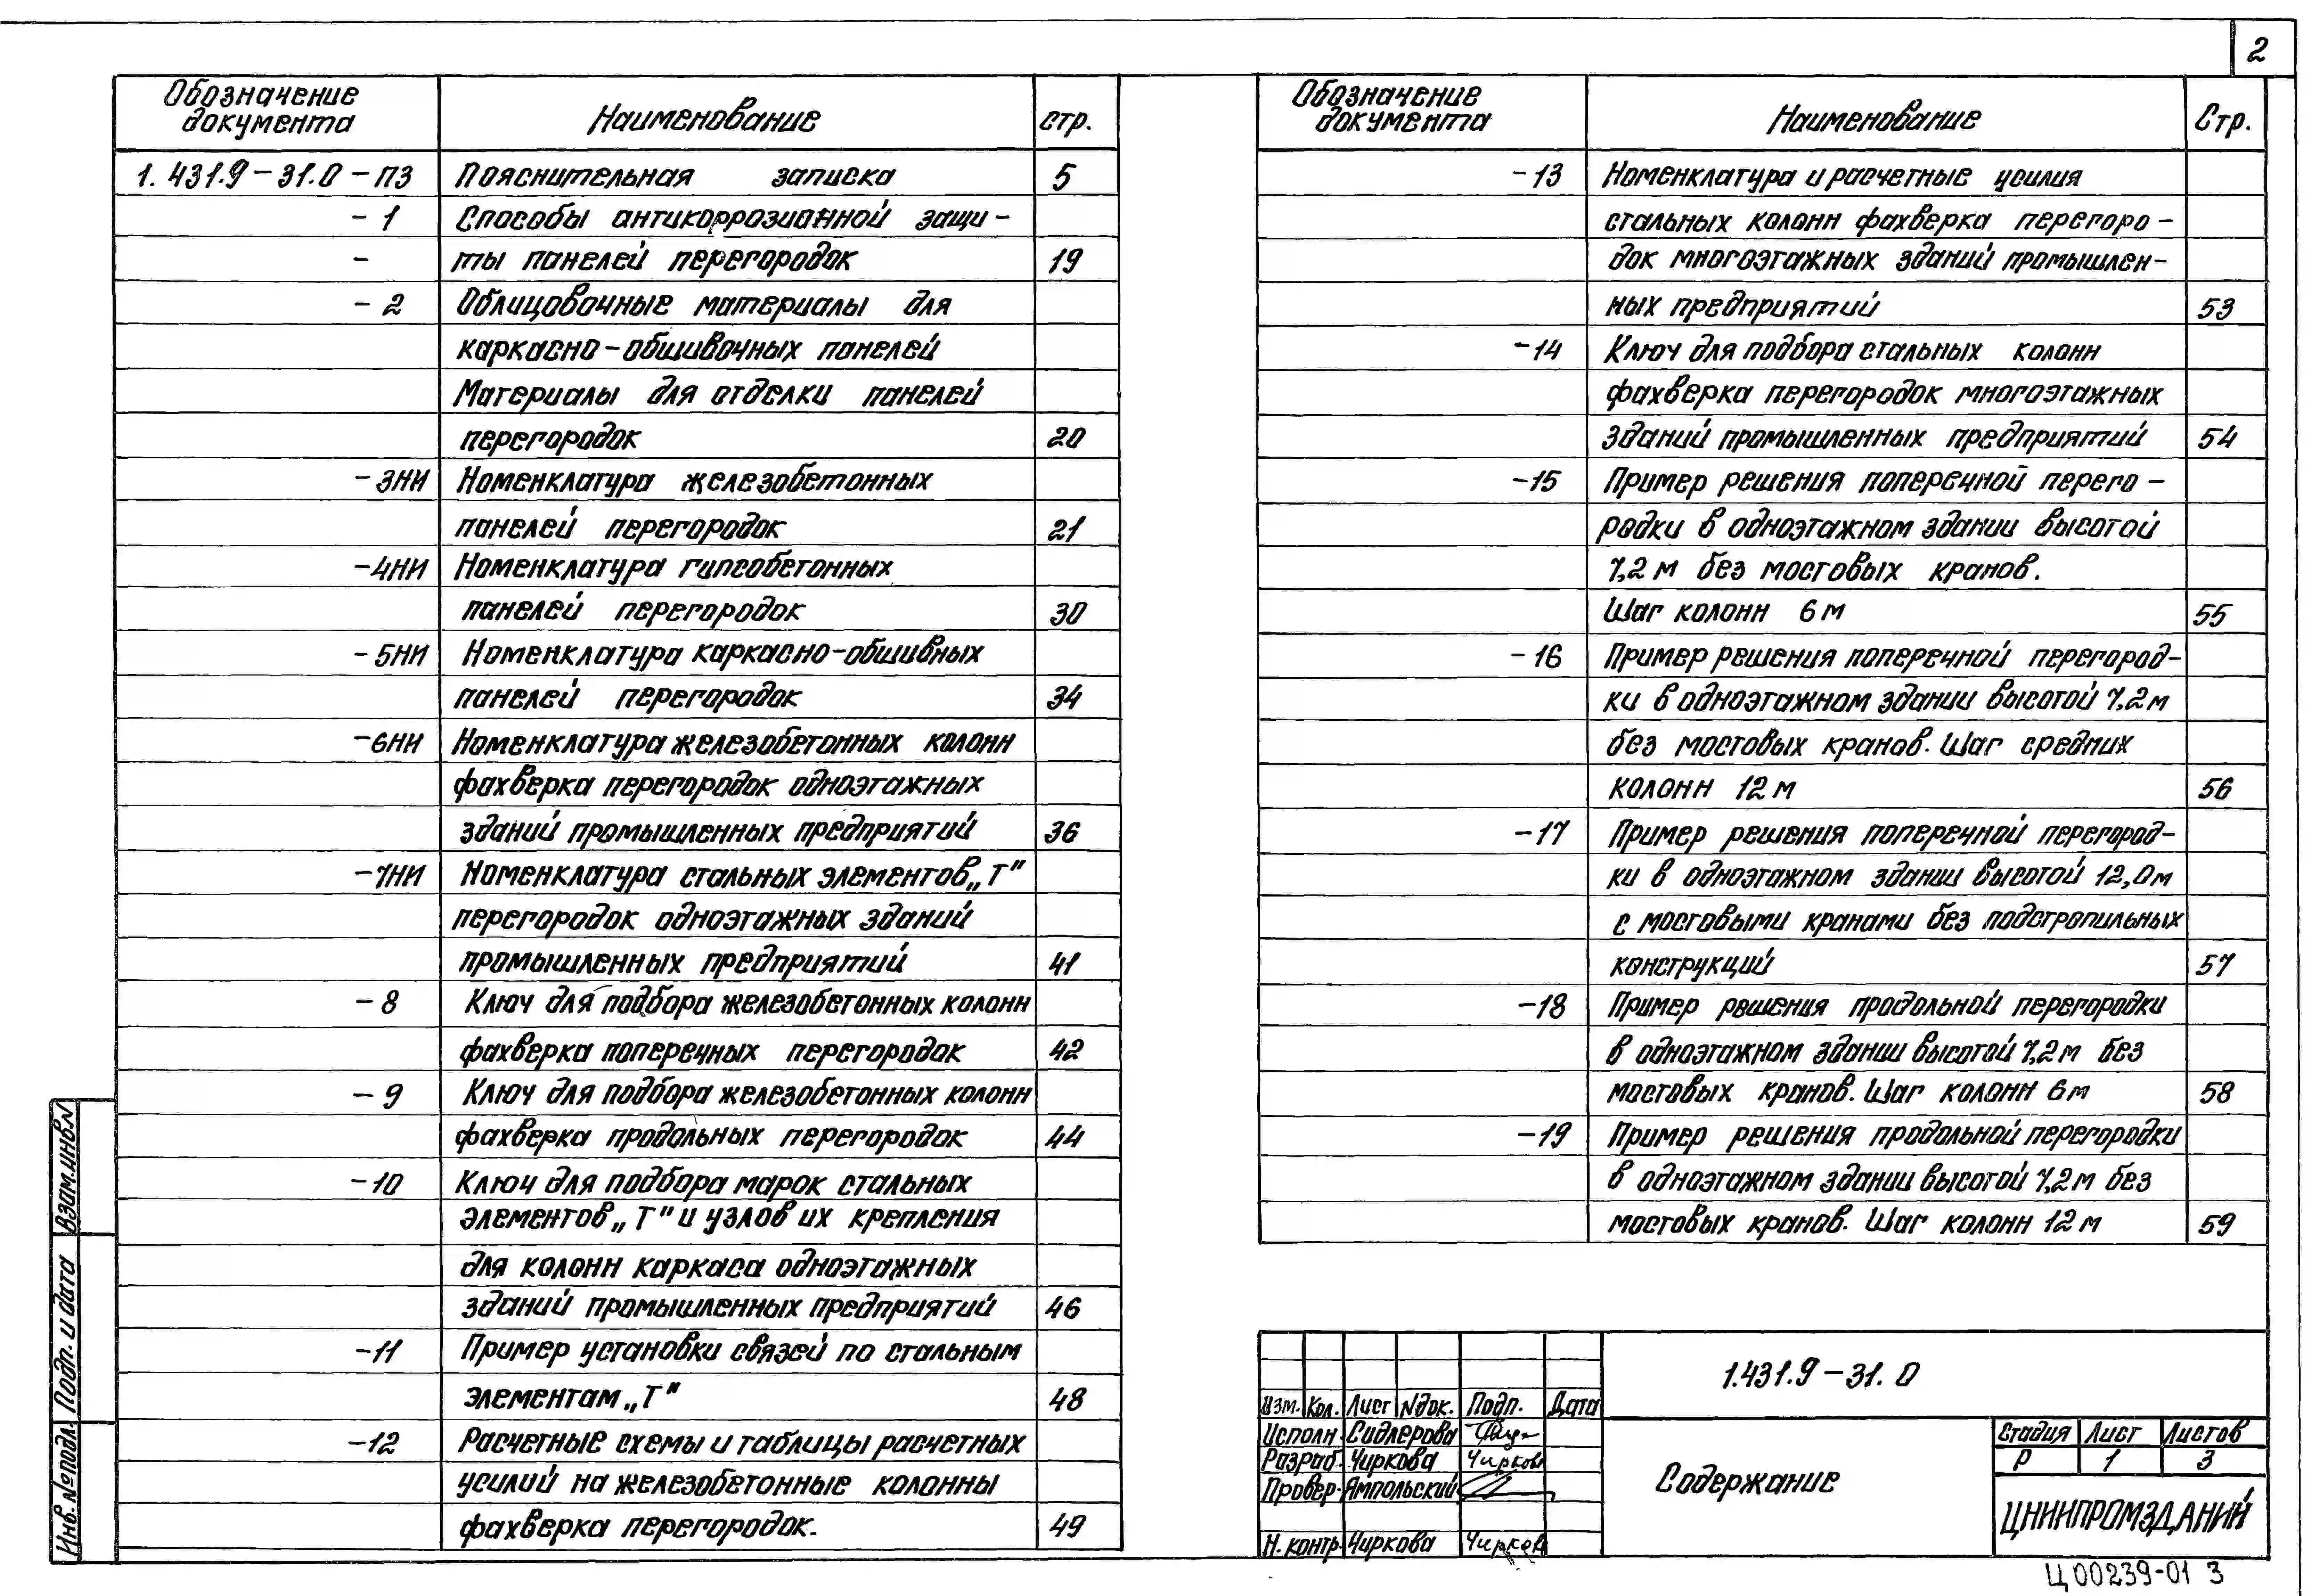 2
Обозначение документа Наименование стр.
1.431.9-31.0-ПЗ Пояснительная записка 5
-1 Способы антикоррозионной защи-
- ты панелей перегородок 19
-2 Облицовочные материалы для
каркасно-обшивочных панелей
Материалы для отделки панелей
перегородок 20
-3НИ Номенклатура железобетонных
панелей перегородок 21
-4НИ Номенклатура гипсобетонных
панелей перегородок 30
-5НИ Номенклатура каркасно-обшивных
панелей перегородок 34
-6НИ Номенклатура железобетонных колонн
фахверка перегородок одноэтажных
зданий промышленных предприятий 36
-7НИ Номенклатура стальных элементов „Т"
перегородок одноэтажных зданий
промышленных предприятий 41
-8 Ключ для подбора железобетонных колонн
фахверка поперечных перегородок 42
-9 Ключ для подбора железобетонных колонн
фахверка продольных перегородок 44
-10 Ключ для подбора марок стальных
элементов „Т" и узлов их крепления
для колонн каркаса одноэтажных
зданий промышленных предприятий 46
-11 Пример установки связей по стальным
элементам „Т" 48
-12 Расчетные схемы и таблицы расчетных
усилий на железобетонные колонны
фахверка перегородок. 49
Обозначение документа Наименование Стр.
-13 Номенклатура и расчетные усилия
стальных колонн фахверка перегоро-
док многоэтажных зданий промышлен-
ных предприятий 53
-14 Ключ для подбора стальных колонн
фахверка перегородок многоэтажных
зданий промышленных предприятий 54
-15 Пример решения поперечной перего-
родки в одноэтажном здании высотой
7,2 м без мостовых кранов.
Шаг колонн 6 м 55
-16 Пример решения поперечной перегород-
ки в одноэтажном здании высотой 7,2 м
без мостовых кранов. Шаг средних
колонн 12 м 56
-17 Пример решения поперечной перегород-
ки в одноэтажном здании высотой 12,0 м
с мостовыми кранами без подстропильных
конструкций 57
-18 Пример решения продольной перегородки
в одноэтажном здании высотой 7,2 м без
мостовых кранов. Шаг колонн 6 м 58
-19 Пример решения продольной перегородки
в одноэтажном здании высотой 7,2 м без
мостовых кранов. Шаг колонн 12 м 59
Взам.инв.N
Подп. и дата
Инв. № подл.
1.431.9-31.0
Изм. Кол. Лист Nдок. Подп. Дата
Исполн. Сидлерова
Разраб. Чиркова Чирков
Провер. Ямпольский
Н. контр. Чиркова Чирков
Содержание
Стадия Лист Листов
Р 1 3
ЦНИИПРОМЗДАНИЙ
Ц00239-01 3